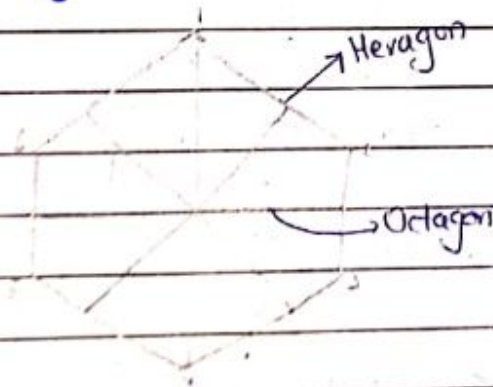 Hexagon
Octagon